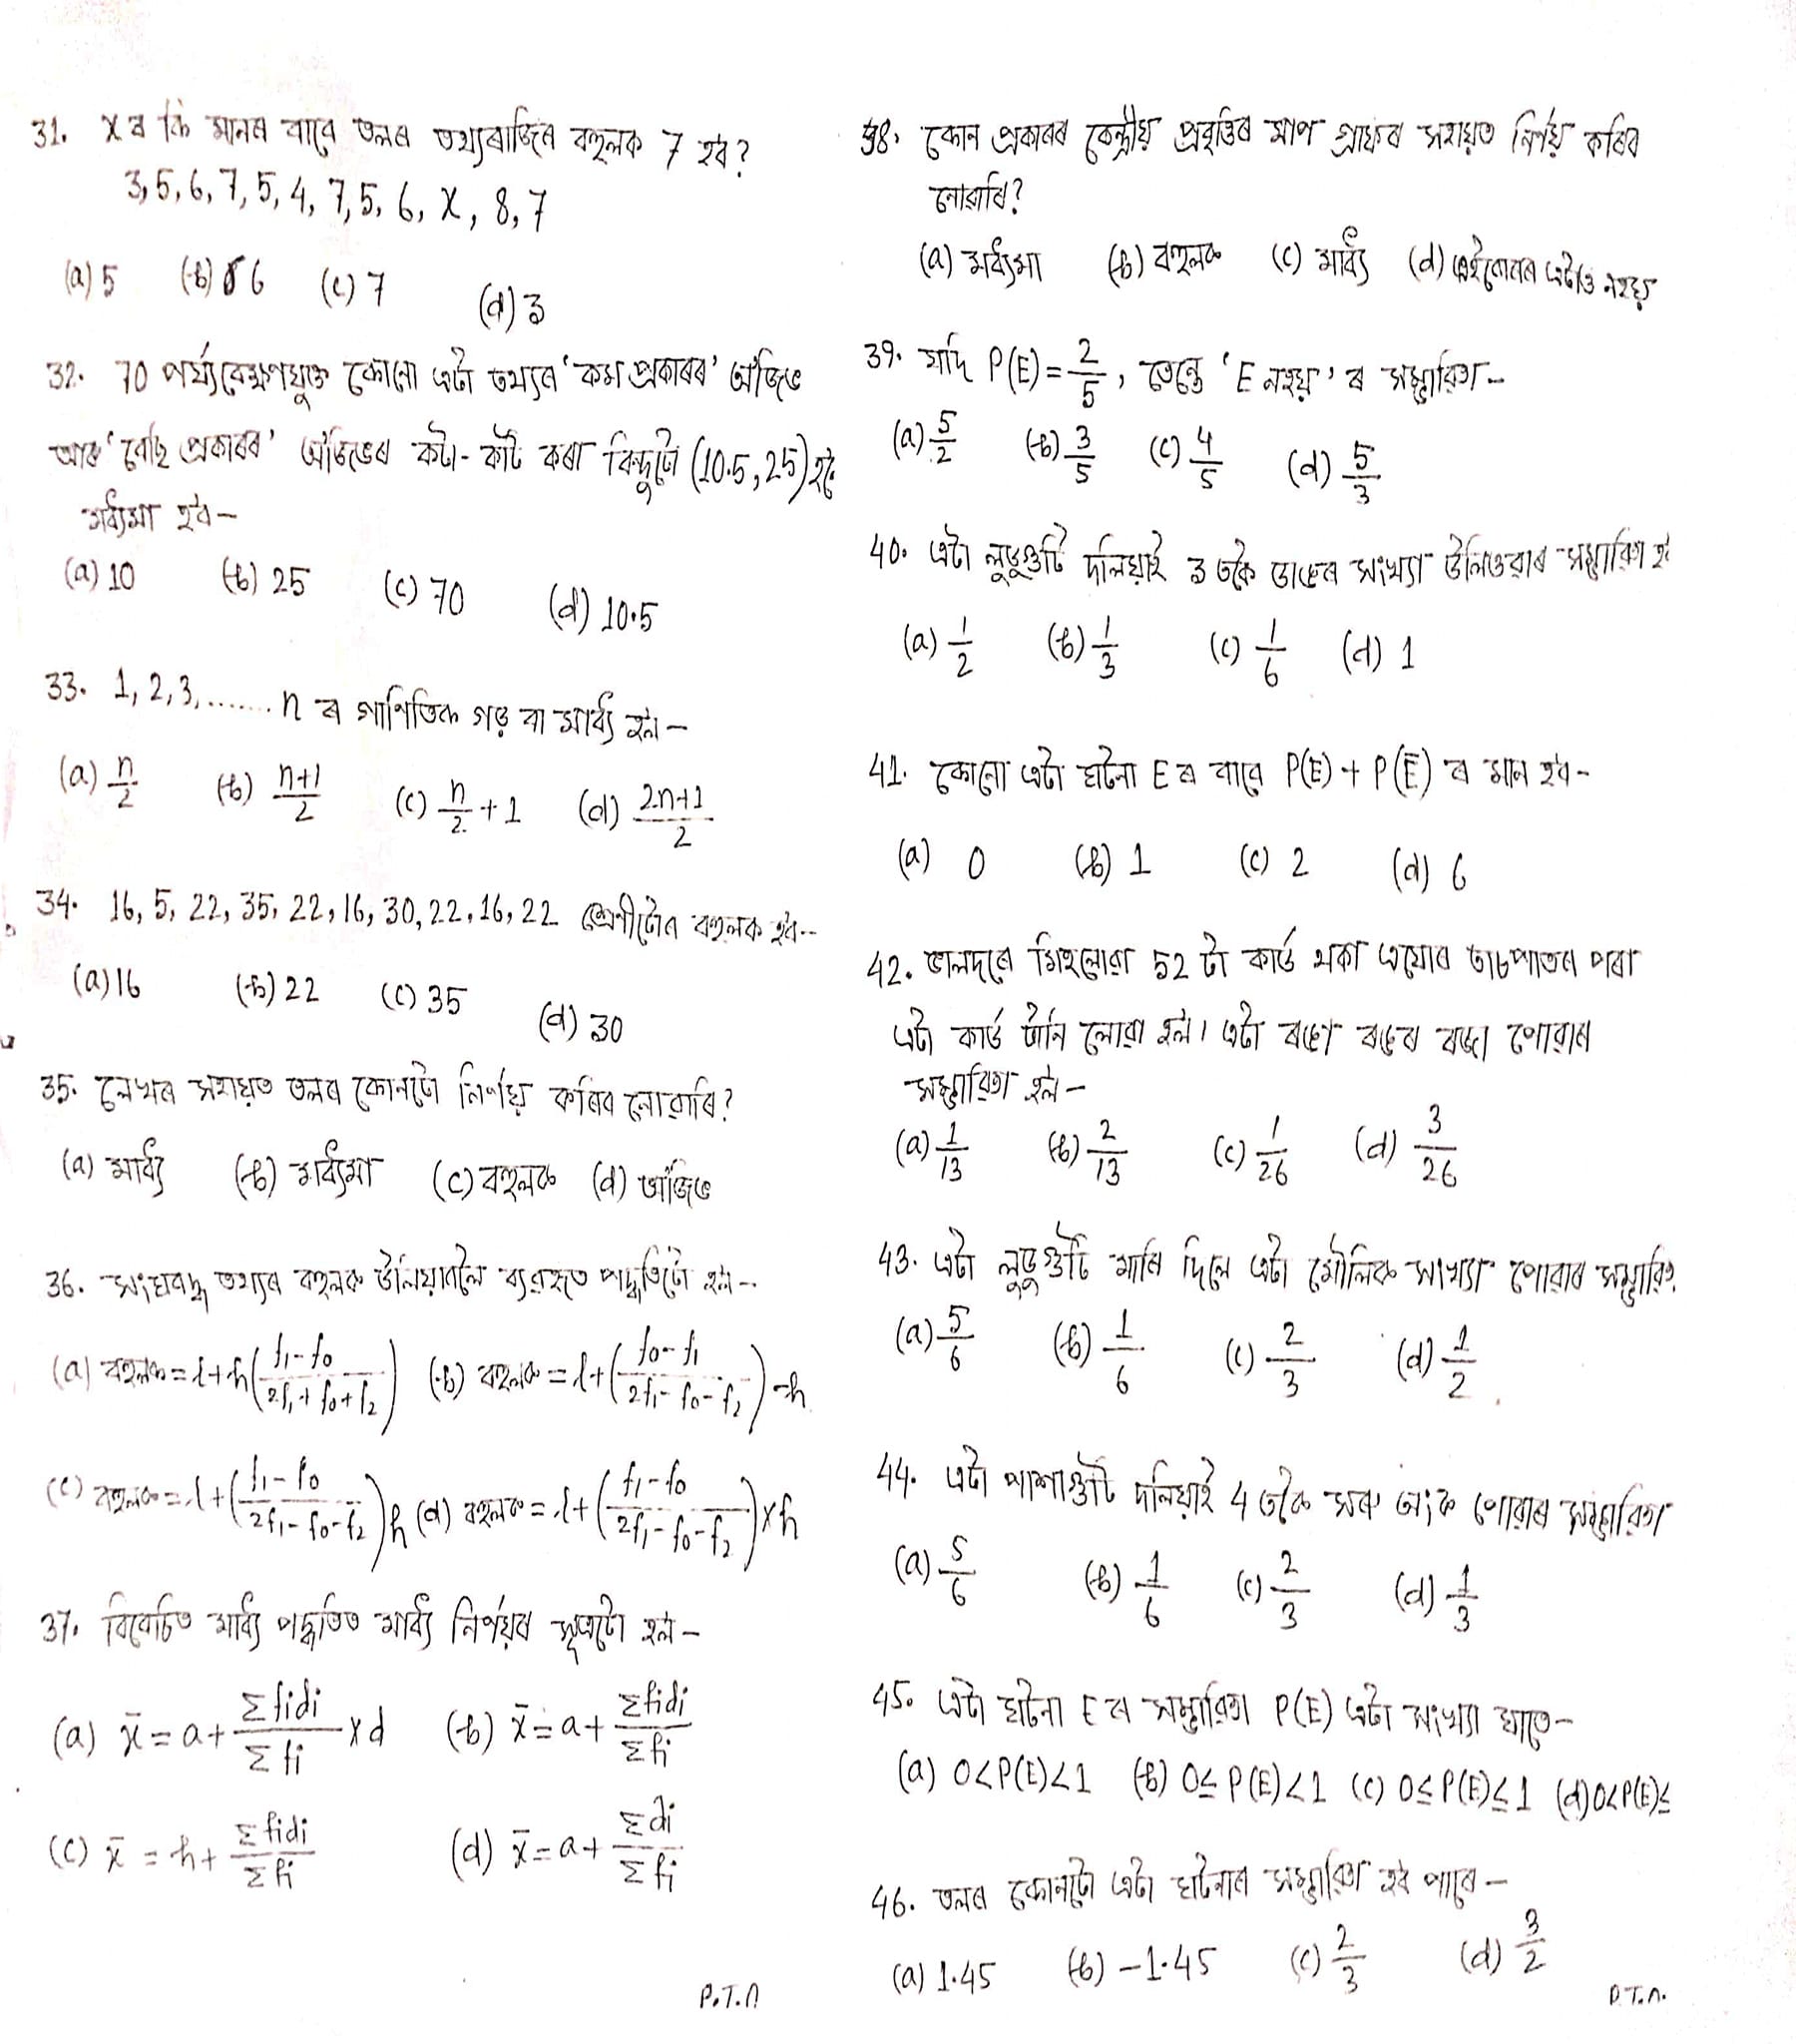 31. x ৰ কি মানৰ বাবে তলৰ তথ্যৰাজিৰ বহুলক 7 হব?
3, 5, 6, 7, 5, 4, 7, 5, 6, x, 8, 7
(a) 5 (b) 6 (c) 7 (d) 3
32. 70 পৰ্য্যবেক্ষণযুক্ত কোনো এটা তথ্যৰ 'কম প্ৰকাৰৰ' অ'জিভ
আৰু 'বেছি প্ৰকাৰৰ' অ'জিভৰ কটা-কটি কৰা বিন্দুটো (10.5, 25) হ'লে
মধ্যমা হ'ব-
(a) 10 (b) 25 (c) 70 (d) 10.5
33. 1, 2, 3, ....... n ৰ গাণিতিক গড় বা মাধ্য হ'ল-
(a) n/2 (b) (n+1)/2 (c) n/2 + 1 (d) (2n+1)/2
34. 16, 5, 22, 35, 22, 16, 30, 22, 16, 22 শ্ৰেণীটোৰ বহুলক হ'ব--
(a) 16 (b) 22 (c) 35 (d) 30
35. লেখৰ সহায়ত তলৰ কোনটো নিৰ্ণয় কৰিব নোৱাৰি?
(a) মাধ্য (b) মধ্যমা (c) বহুলক (d) অ'জিভ
36. সংঘবদ্ধ তথ্যৰ বহুলক উলিয়াবলৈ ব্যৱহৃত পদ্ধতিটো হ'ল-
(a) বহুলক = l + h((f₁-f₀)/(2f₁+f₀+f₂)) (b) বহুলক = l + ((f₀-f₁)/(2f₁-f₀-f₂)) -h
(c) বহুলক = l + ((f₁-f₀)/(2f₁-f₀-f₂))h (d) বহুলক = l + ((f₁-f₀)/(2f₁-f₀-f₂))×h
37. বিবেচিত মাধ্য পদ্ধতিত মাধ্য নিৰ্ণয়ৰ সূত্ৰটো হ'ল-
(a) x̄ = a + Σfidi/Σfi × d (b) x̄ = a + Σfidi/Σfi
(c) x̄ = h + Σfidi/Σfi (d) x̄ = a + Σdi/Σfi
P.T.O
38. কোন প্ৰকাৰৰ কেন্দ্ৰীয় প্ৰবৃত্তিৰ মাপ গ্ৰাফৰ সহায়ত নিৰ্ণয় কৰিব
নোৱাৰি?
(a) মধ্যমা (b) বহুলক (c) মাধ্য (d) এইবোৰৰ এটাও নহয়
39. যদি P(E) = 2/5, তেন্তে 'E নহয়' ৰ সম্ভাৱিতা-
(a) 5/2 (b) 3/5 (c) 4/5 (d) 5/3
40. এটা লুডুগুটি দলিয়াই 3 তকৈ ডাঙৰ সংখ্যা উলিওৱাৰ সম্ভাৱিতা হ'ল
(a) 1/2 (b) 1/3 (c) 1/6 (d) 1
41. কোনো এটা ঘটনা E ৰ বাবে P(E) + P(Ē) ৰ মান হ'ব-
(a) 0 (b) 1 (c) 2 (d) 6
42. ভালদৰে মিহলোৱা 52 টা কাৰ্ড থকা এযোৰ তাচপাতৰ পৰা
এটা কাৰ্ড টানি লোৱা হ'ল। এটা ৰঙা ৰঙৰ ৰজা পোৱাৰ
সম্ভাৱিতা হ'ল-
(a) 1/13 (b) 2/13 (c) 1/26 (d) 3/26
43. এটা লুডুগুটি মাৰি দিলে এটা মৌলিক সংখ্যা পোৱাৰ সম্ভাৱিতা
(a) 5/6 (b) 1/6 (c) 2/3 (d) 1/2
44. এটা পাশাগুটি দলিয়াই 4 তকৈ সৰু অংক পোৱাৰ সম্ভাৱিতা
(a) 5/6 (b) 1/6 (c) 2/3 (d) 1/3
45. এটা ঘটনা E ৰ সম্ভাৱিতা P(E) এটা সংখ্যা যাতে-
(a) 0<P(E)<1 (b) 0≤P(E)<1 (c) 0≤P(E)≤1 (d) 0<P(E)≤
46. তলৰ কোনটো এটা ঘটনাৰ সম্ভাৱিতা হ'ব পাৰে-
(a) 1.45 (b) -1.45 (c) 2/3 (d) 3/2
P.T.O.